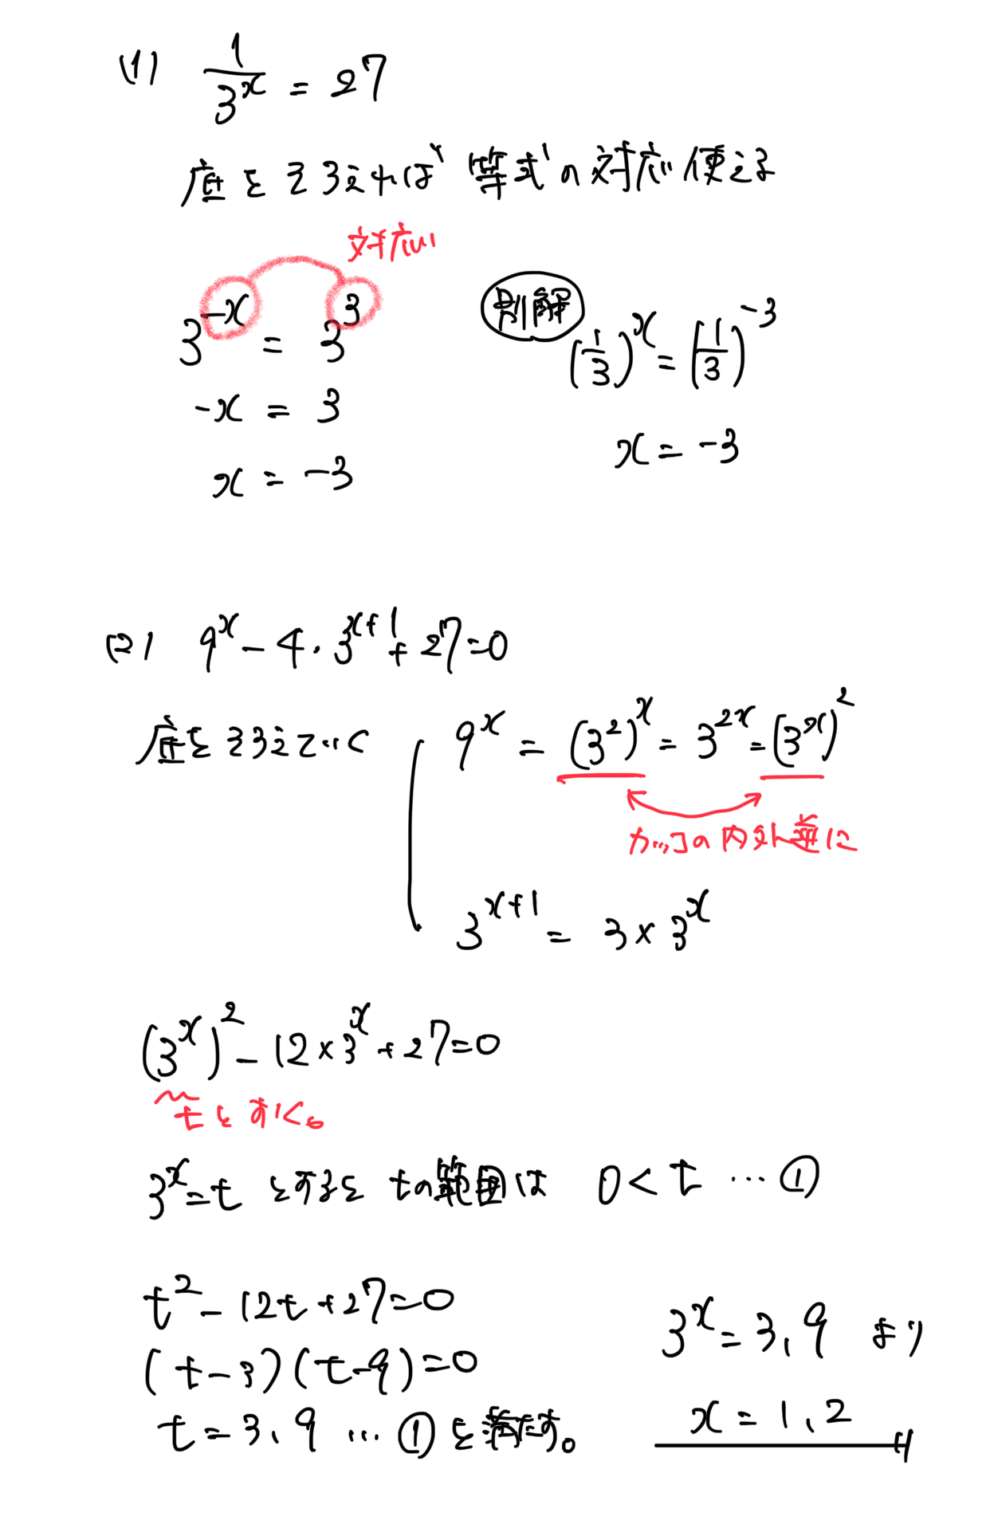 (1) 1/3^x = 27
底をそろえれば 等式の対応使える
対応
3^-x = 3^3
-x = 3
x = -3
別解
(1/3)^x = (1/3)^-3
x = -3
(2) 9^x - 4・3^x+1 + 27=0
底をそろえていく
9^x = (3^2)^x = 3^2x = (3^x)^2
カッコの内外逆に
3^x+1 = 3 × 3^x
(3^x)^2 - 12×3^x + 27=0
tとおく。
3^x=t とすると tの範囲は 0<t …①
t^2 - 12t + 27=0
(t-3)(t-9)=0
t=3、9 …①を満たす。
3^x=3、9 より
x=1、2